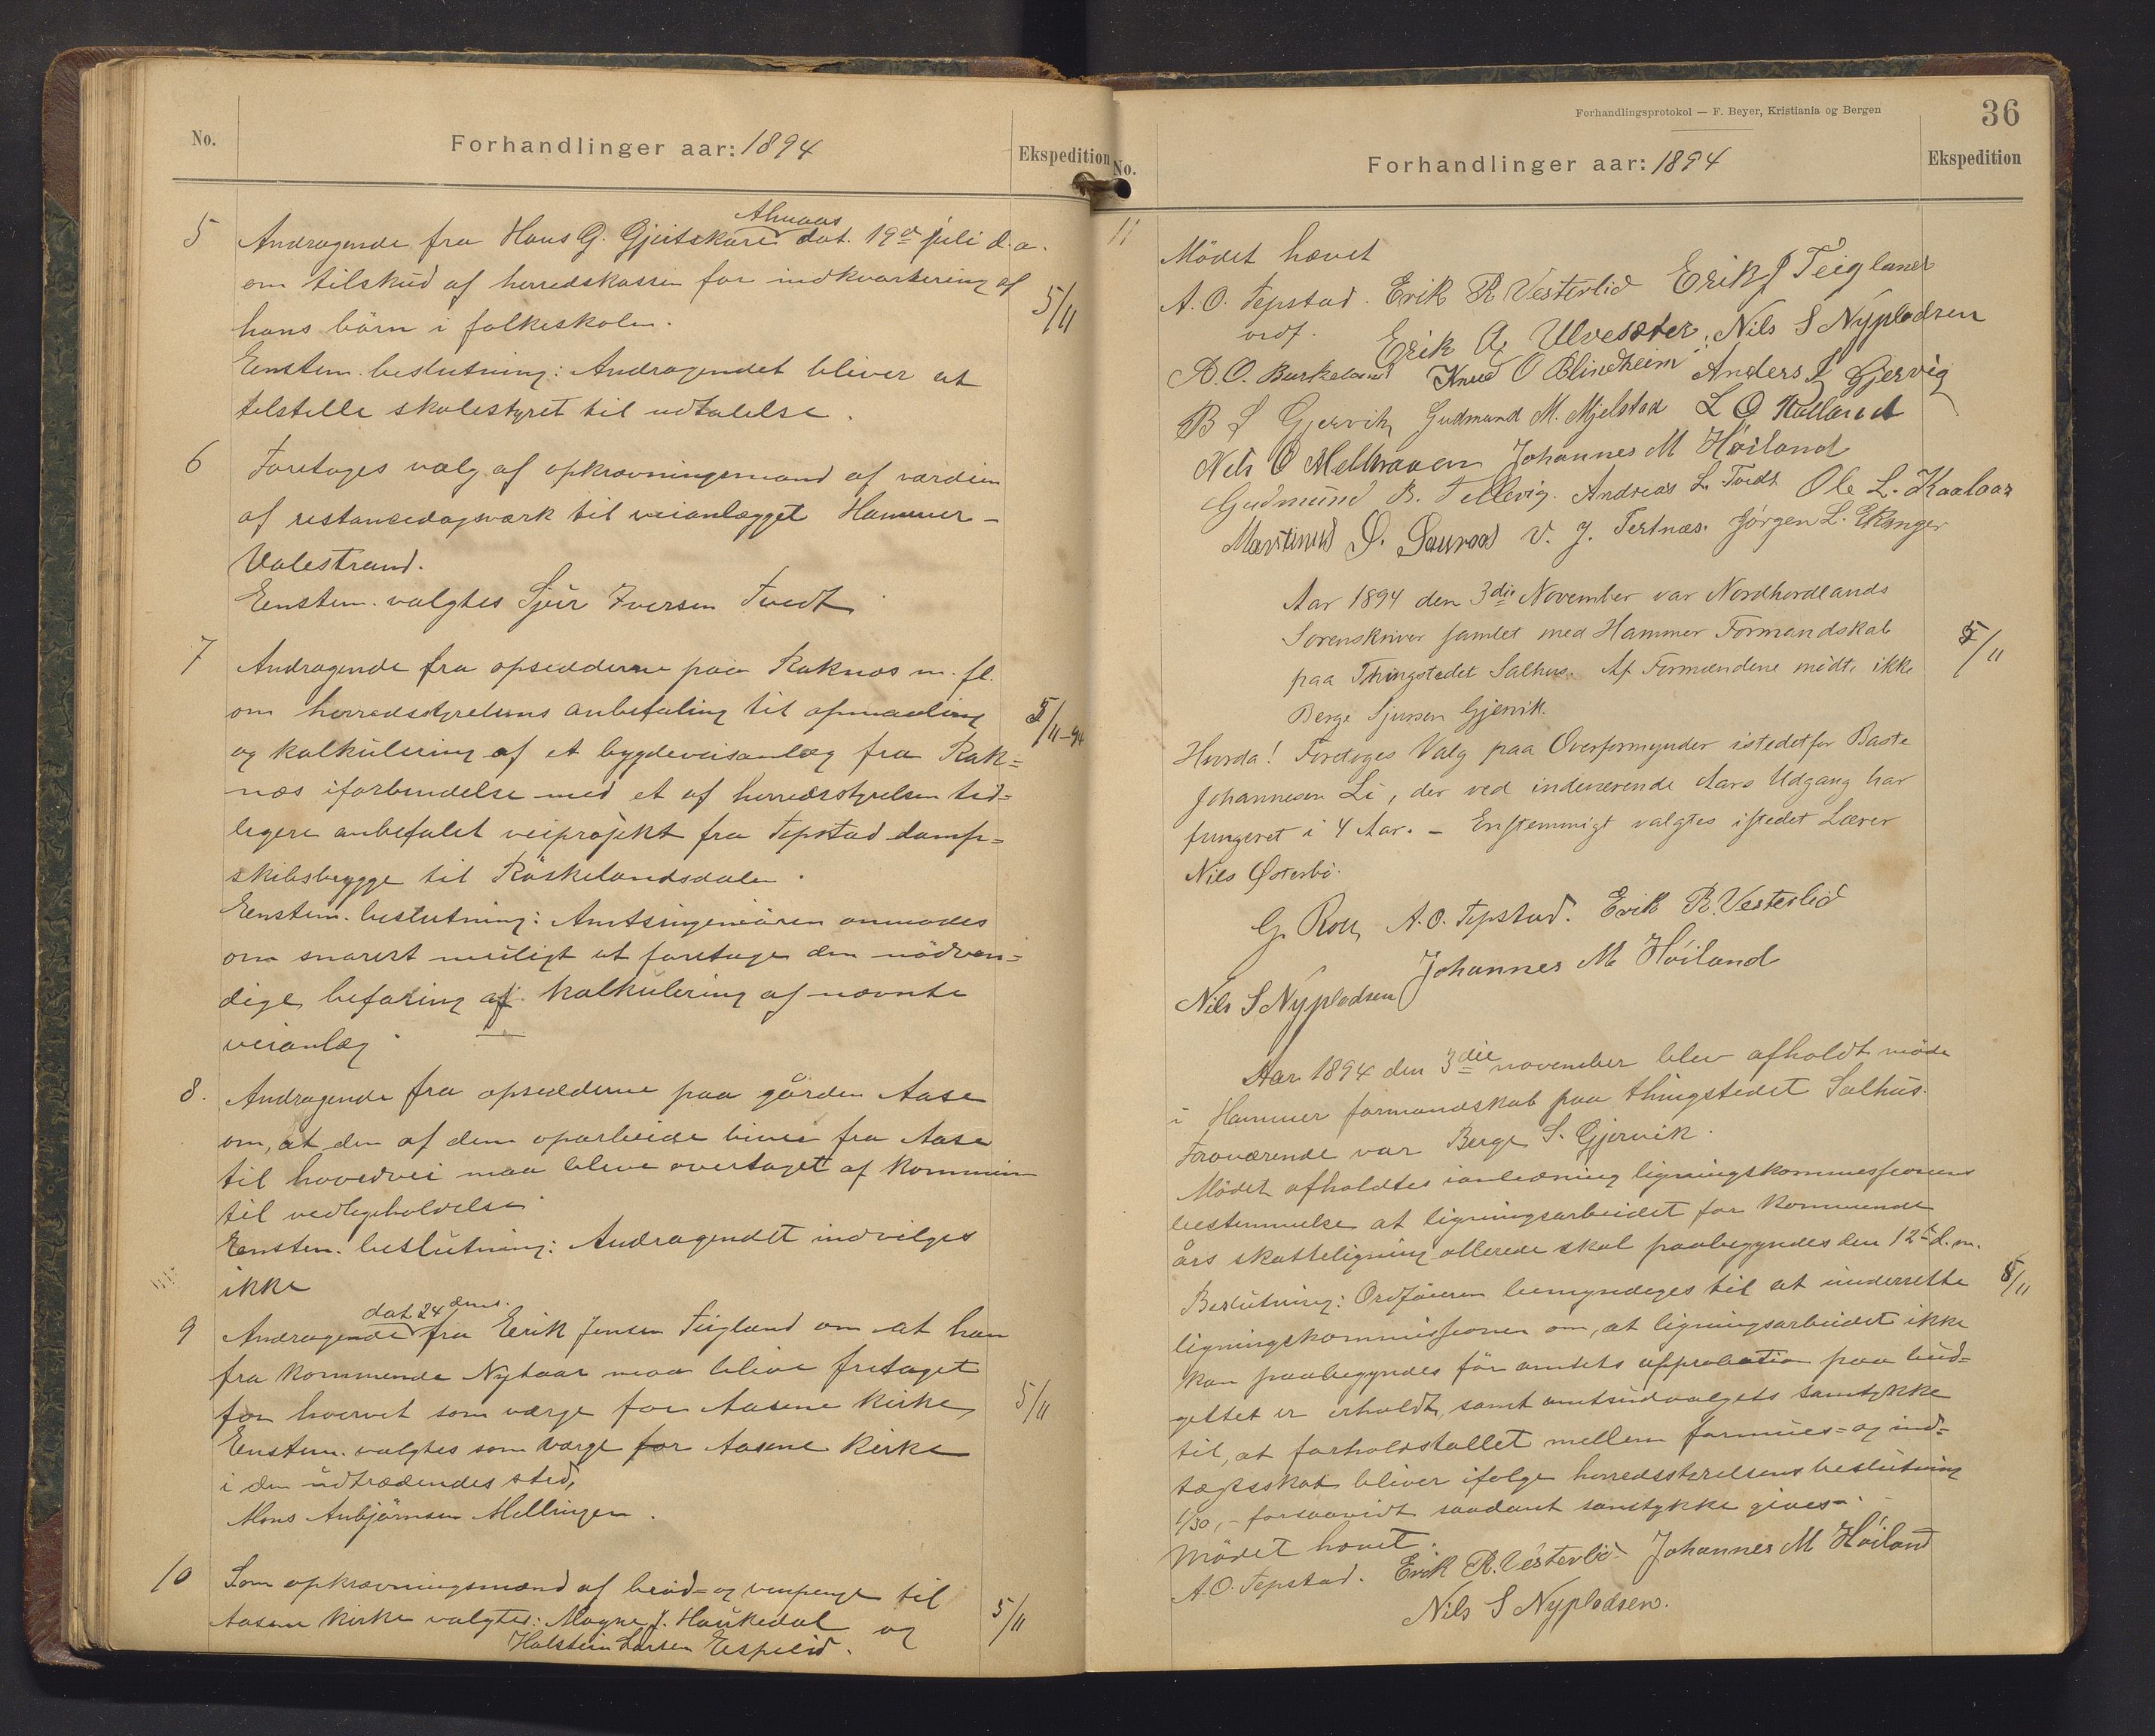 No.
Forhandlinger aar: 1894
Ekspedition
5
Almaas
Andragende fra Hans G. Gjeitskare dat. 19de juli d.a.
om tilskud af herredskassen for indkvartering af
hans börn i folkeskolen.
5/11
Eenstem. beslutning: Andragendet bliver at
tilstille skolestyret til udtalelse.
6
Foretages valg af opkrævningsmand af værdien
af restancedagsværk til veianlægget Hammer-
Valestrand.
Eenstem. valgtes Sjur Iversen Tvedt
7
Andragende fra opsidderne paa Raknæs m. fl.
om herredsstyrelsens anbefaling til opmaaling
5/11-94
og kalkulering af et bygdeveisanlæg fra Rak=
næs iforbindelse med et af herredsstyrelsen tid=
ligere anbefalet veiprojekt fra Tepstad damp=
skibsbrygge til Röskelandsdalen.
Eenstem. beslutning: Amtsingeniören anmodes
om snarest muligt at foretage den nödven=
dige befaring af kalkulering af nævnte
veianlæg
8.
Andragende fra opsidderne paa gården Aase
om, at den af dem oparbeide bivei fra Aase
til hovedvei maa blive overtaget af kommunen
til vedligeholdelse.
Eenstem. beslutning: Andragendet indvilges
ikke
9
dat. 24 dms.
Andragende fra Erik Jensen Teigland om at han
fra kommende Nytaar maa blive fritaget
for hvervet som værge for Aasene kirke
5/11
Eenstem. valgtes som værge for Aasene kirke
i den udtrædendes sted,
Mons Anbjörnsen Mellingen.
10
Som opkrævningsmænd af bröd= og vinpenge til
Aasene kirke valgtes: Magne J. Haukedal og
5/11
Holstein Larsen Espelid.
Forhandlingsprotokol — F. Beyer, Kristiania og Bergen
36
No.
Forhandlinger aar: 1894
Ekspedition
11
Mödet hævet
A. O. Tepstad. Erik R Vesterlid Erik J Teigland
ordf.
Erik A. Ulvesæter. Nils S Nyplodsen
A. O. Burkeland Knud O Blindheim Anders S Gjervig
B S Gjervik Gudmund M. Mjelstad L O Kalland
Nils O Melkraaen Johannes M Höiland
Gudmund B. Tellevig. Andreas L. Tvedt Ole L. Kaalaas
Martinus D. Sauraas V. J. Tertnæs. Jørgen L. Eknger
Aar 1894 den 3die November var Nordhordlands
Sorenskriver samlet med Hammer Formandskab
5/11
paa Thingstedet Salhus. Af Formændene mødte ikke
Berge Sjursen Gjervik.
Hvorda! Foretoges Valg paa Overformynder istedetfor Baste
Johannesen Li, der ved indeværende Aars Udgang har
fungeret i 4 Aar. — Enstemmigt valgtes istedet Lærer
Nils Østerbö.
G. Roll A. O. Tepstad. Erik R. Vesterlid
Johannes M Höiland
Nils S Nyplodsen
Aar 1894 den 3die november blev afholdt möde
i Hammer formandskab paa thingstedet Salhus.
Fraværende var Berge S. Gjervik.
Mödet afholdtes ianledning ligningskommissionens
bestemmelse at ligningsarbeidet for kommende
års skatteligning allerede skal paabegyndes den 12te d. m.
Beslutning: Ordföreren bemyndiges til at underrette
5/11
ligningskommissionen om, at ligningsarbeidet ikke
kan paabegyndes för amtets approbation paa bud=
gettet er erholdt, samt amtsudvalgets samtykke
til, at forholdstallet mellem formues= og ind=
tægtsskat bliver ifølge herredsstyrelsens beslutning
1/30, — forsaavidt saadant samtykke gives.
Mödet hævet.
A. O. Tepstad. Erik R. Vesterlid. Johannes M Höiland
Nils S Nyplodsen.